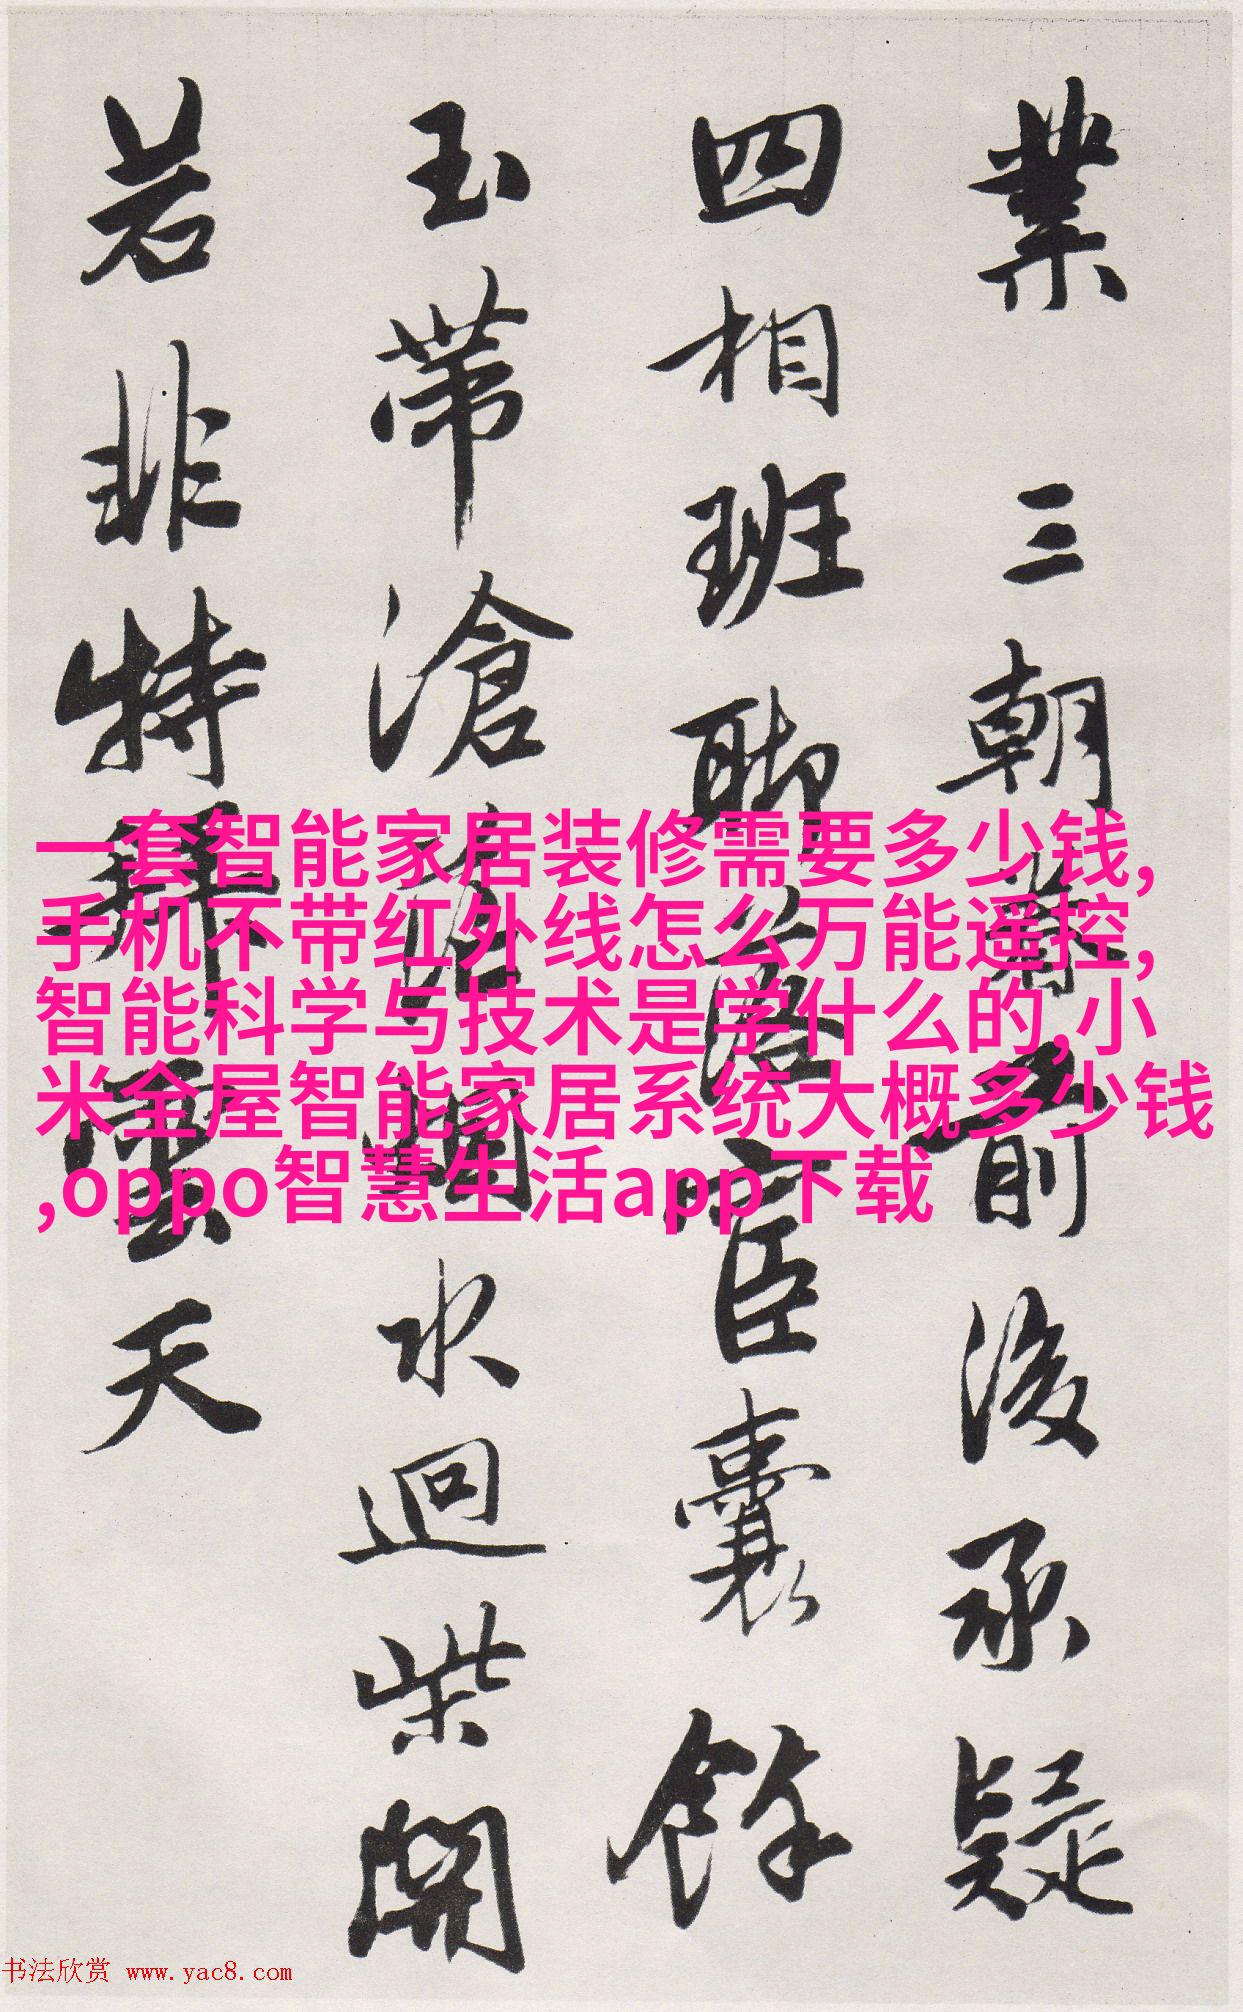 業三朝前後承疑
四相班聯臣囊餘
玉帶滄煙水迴柴開
若非特天
一套智能家居装修需要多少钱,
手机不带红外线怎么万能遥控,
智能科学与技术是学什么的,小
米全屋智能家居系统大概多少钱
,oppo智慧生活app下载
书法欣赏 www.yac8.com